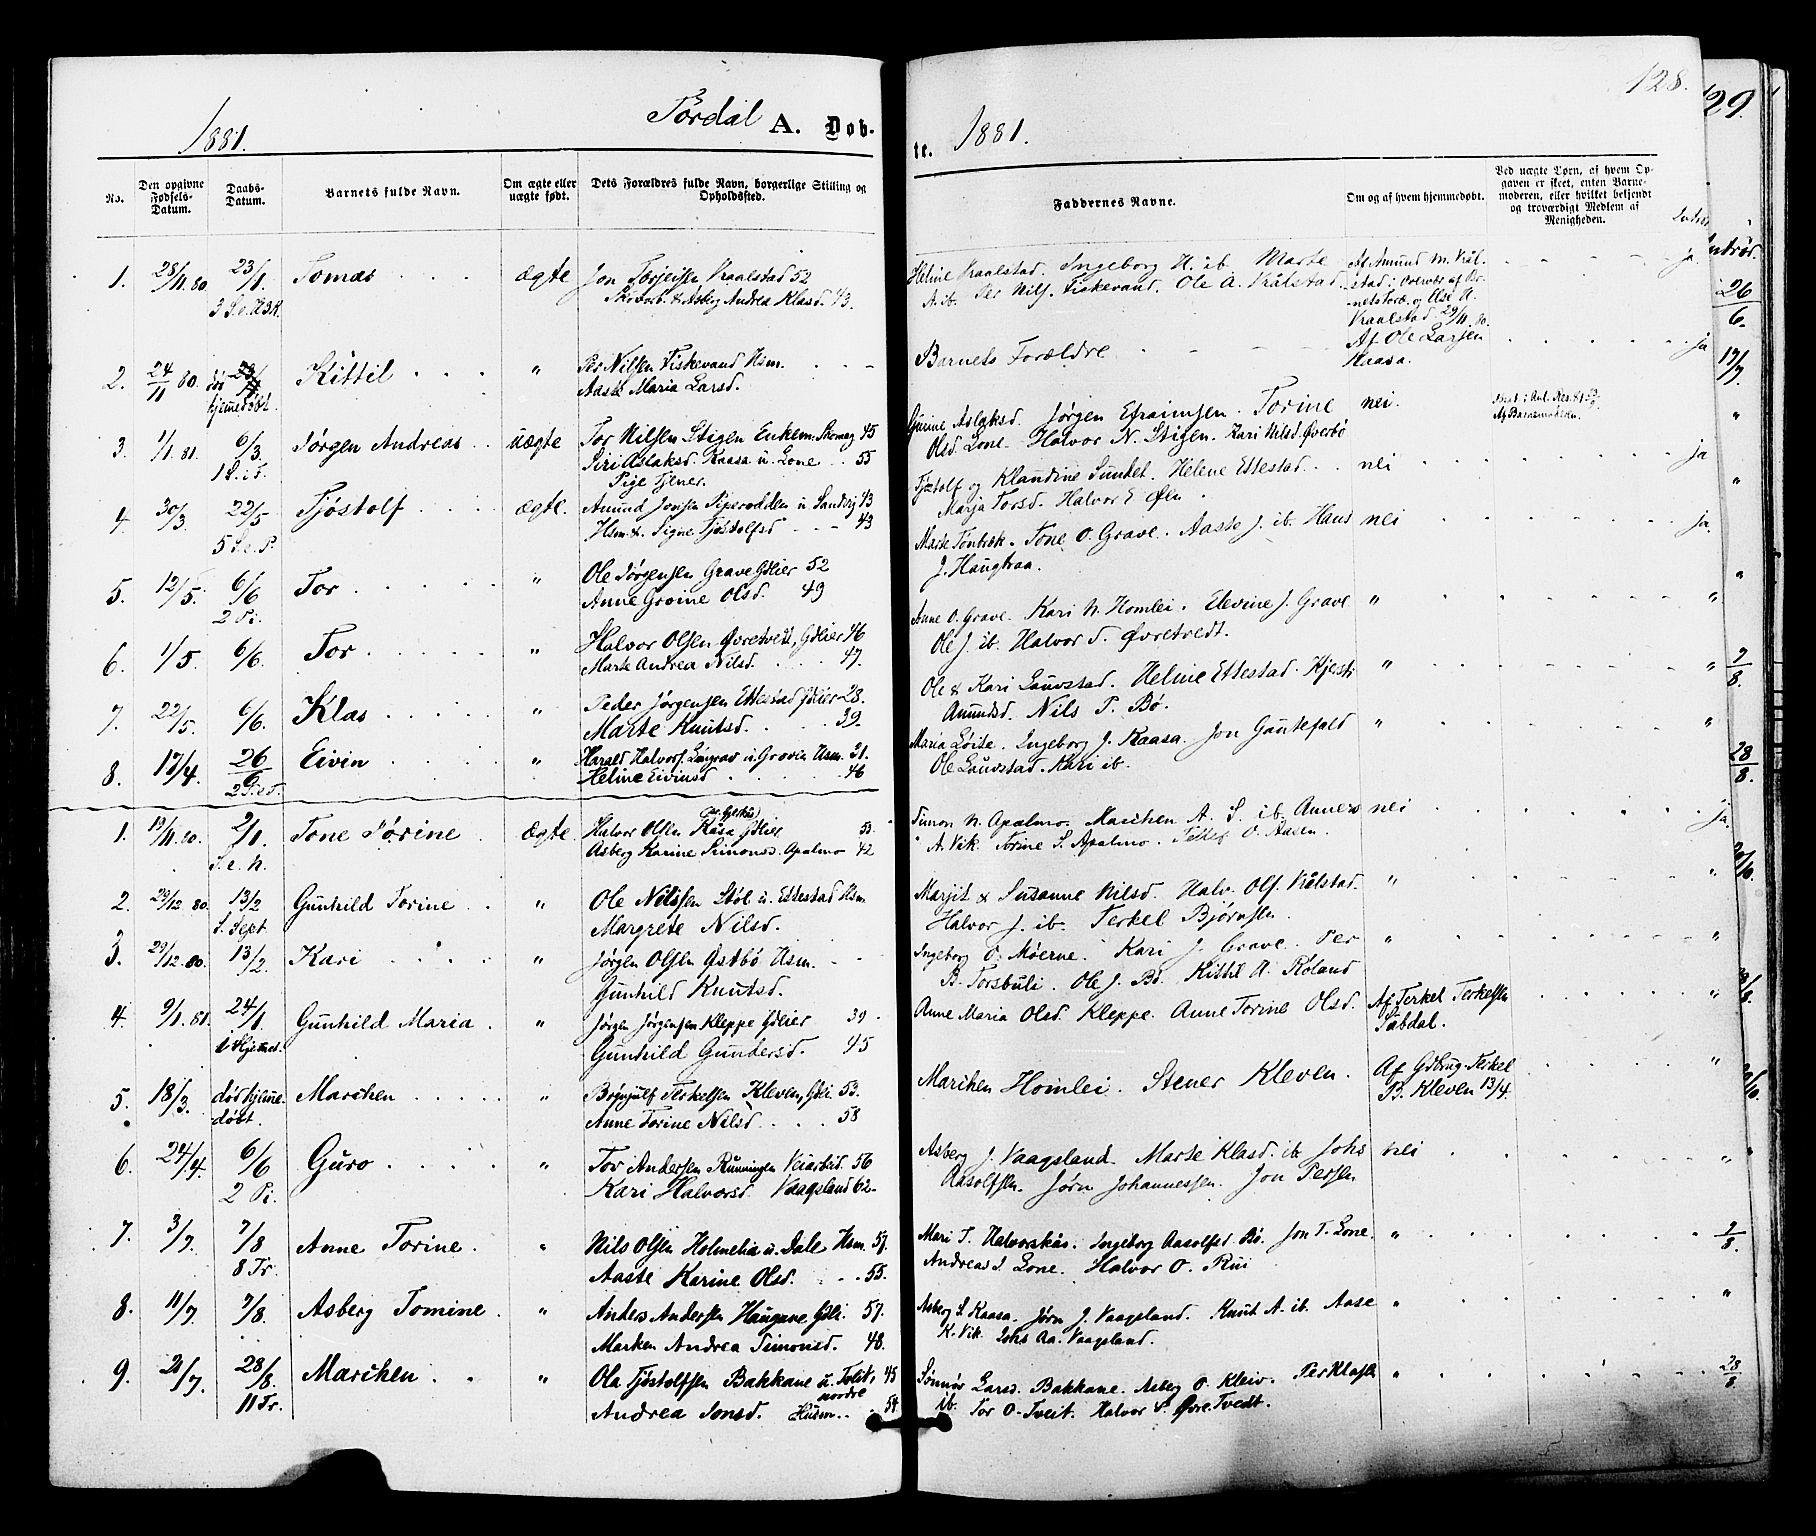 128.
129.
Tørdal A. Døb-
te.
1881.
1881.
No.
Den opgivne Fødsels-Datum.
Daabs-Datum.
Barnets fulde Navn.
Om ægte eller uægte født.
Dets Forældres fulde Navn, borgerlige Stilling og Opholdssted.
Faddernes Navne.
Om og af hvem hjemmedøbt.
Ved uægte Børn, af hvem Opgaven er skeet, enten Barnemoderen, eller hvilket bekjendt og troværdigt Medlem af Menigheden.
1. 28/11 80 23/1 Tomas ægte Jon Torjeisen Kraalstad 52 Helene Kraalstad. Ingeborg H. ib. Marte Af Amund N. Krål- ja.
3 S. e. H3K. & Asberg Andrea Klasd. 43 A. ib. Per Nils. Fiskevand. Ole A. Krålstad. stad i Overvær af Bar-
nets Foræ. og Else A.
Kraalstad 29/11 80.
2. 24/11 80. Kittil " Per Nilsen Fiskevand Hsm. Barnets Forældre Af Ole Larsen ja
død hjemedøbt. Aaste Maria Larsd. Kaasa.
3. 1/1 81. 6/3. Jørgen Andreas uægte Tor Nilsen Stigen Enkem. Skomag 45 Gurine Aslaksd. Jørgen Efraimsen. Torine nei. "
1 S. i F. Siri Aslaksd. Kaasa u. Lone 55 Olsd. Lone. Halvor N. Stigen. Kari Nilsd. Øverbø Af Barnemoderen.
Pige Tjener.
4. 30/3. 22/5 Tjøstolf ægte. Amund Jonsen Piperodden u. Sandvig 43 Tjøstolf og Klaudine Sundet. Helene Ettestad nei ja
5 S. e. P. Hsm. & Signe Tjøstolfsd 43 Marja Torsd. Halvor E Øen
5. 12/5. 6/6 Tor " Ole Jørgensen Grave Gdeier 52 Marte Tøntrøk. Tone O. Grave. Aaste J. ib. Hans nei ja.
2 Pi. Anne Groine Olsd. 49 J. Haugkaa.
6. 1/5. 6/6. Tor " Halvor Olsen Øvretvedt, Gdeier 46 Anne O. Grave. Kari N. Homlei. Elevine J. Grave " "
Marte Andrea Nilsd. 47. Ole J. ib. Halvor T. Øvretvedt.
7. 22/5. 6/6. Klas " Peder Jørgensen Ettestad Gdeier 28. Ole & Kari Lauvstad. Heline Ettestad. Kjersti " "
Marte Knutsd. 39. Amundsd. Nils P. Bø.
8. 17/4. 26/6 Eivin " Harald Halvors. u. Grovin Hsm. 31. Maria Løite. Ingeborg J. Kaasa. Jon Gautefald " "
2 S. e. T. Heline Eivinsd 46 Ole Lauvstad. Kari ib.
1. 19/11 80. 2/1 Tone Tørine Ægte Halvor Olsen Kåsa Gdeier 53. Simon N. Apalmo. Marichen A. S. ib. Anners nei ja.
S. e. N. Asberg Karine Simonsd. Apalmo 42 A. Vik. Torine S. Apalmo. O. Aasen.
2. 29/12 80. 13/2 Gunhild Torine " Ole Nilssen Støl u. Ettestad Hsm. Marjit & Susanne Nilsd. Halv. Ols. Kålstad. " "
S. Sept. Margrete Nilsd. Halvor J. ib. Terkel Bjørnsen.
3. 29/12 80. 13/2 Kari " Jørgen Olsen Østbø Hsm. Ingeborg O. Møerne. Kari J. Grave. Per " "
Gunhild Knutsd. B. Torsbuli. Ole J. Bø. Kittil A. Røland
4. 9/1 81. 24/1 Gunhild Maria " Jørgen Jørgensen Kleppe Gdeier 39 Anne Maria Olsd. Kleppe. Anne Torine Olsd. Af Terkel Terkelsen "
i Hjemet. Gunhild Gundersd. 45 Tabdal.
5. 18/3. død hjeme- Marchen " Brynjulf Terkelsen Kleven, Gdei. 53. Marchen Homlei. Stener Kleven. Af Gdbrug. Terkel "
døbt. Anne Torine Nilsd 58 B. Kleven 13/4
6. 24/4. 6/6 Guro " Tor Andersen Rønningen Veiarbeid. 56 Asberg J. Vaagsland. Marte Klasd. ib. Johs nei "
2 Pi. Kari Halvorsd. Vaagsland 62 Aasolfsen. Jørn Johannessen. Jon Persen
7. 3/7. 7/8 Anne Torine " Nils Olsen Holmelia u. Dale Hsm. 57. Mari T. Halvorskås. Ingeborg Aasolfsd Bø. Jon T. Lone. " 7/8.
8 Tr. Aaste Karine Olsd. 55. Andreas J. Lone. Halvor O. Rui
8. 11/7. 7/8. Asberg Tomine " Anders Andersen Haugane Gdei. 57. Asberg S. Kaasa. Jørn J. Vaagsland. Knut A. ib. Aase " "
Marken Andrea Simonsd. 48. K. Vik. Johs Aa. Vaagsland.
9. 20/7. 28/8. Marichen " Ola Tjøstolfsen Bakkane u. Tveit, 45 Sønnøv Larsd. Bakkane. Asberg O. Kleiv. Per Klasen " 28/8.
nordre
11 Tr. Andrea Jonsd. Husm. 54 ib. Tor O. Tveit. Halvor S. Øvre Tvedt.
26/6.
17/7.
"
"
"
7/8.
28/8.